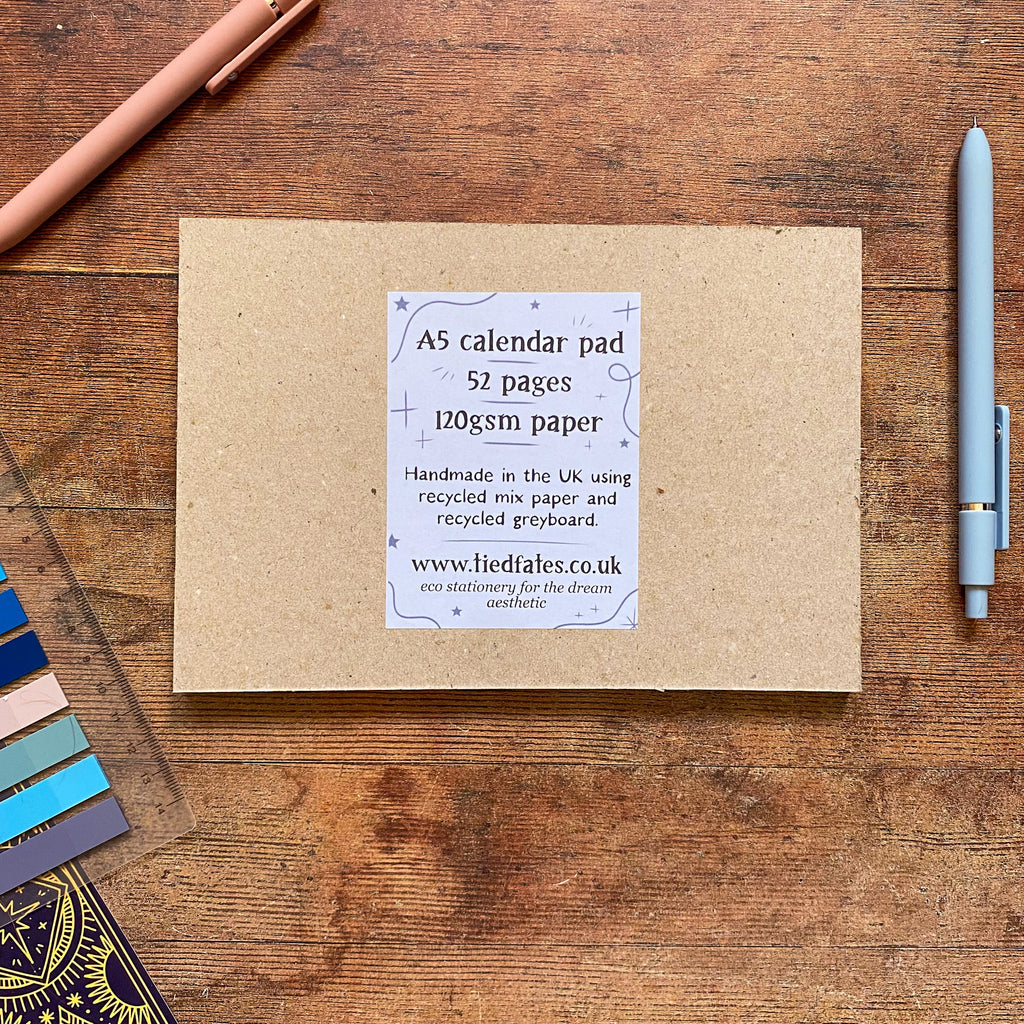 A5 calendar pad
52 pages
120gsm paper
Handmade in the UK using
recycled mix paper and
recycled greyboard.
www.tiedfates.co.uk
eco stationery for the dream
aesthetic